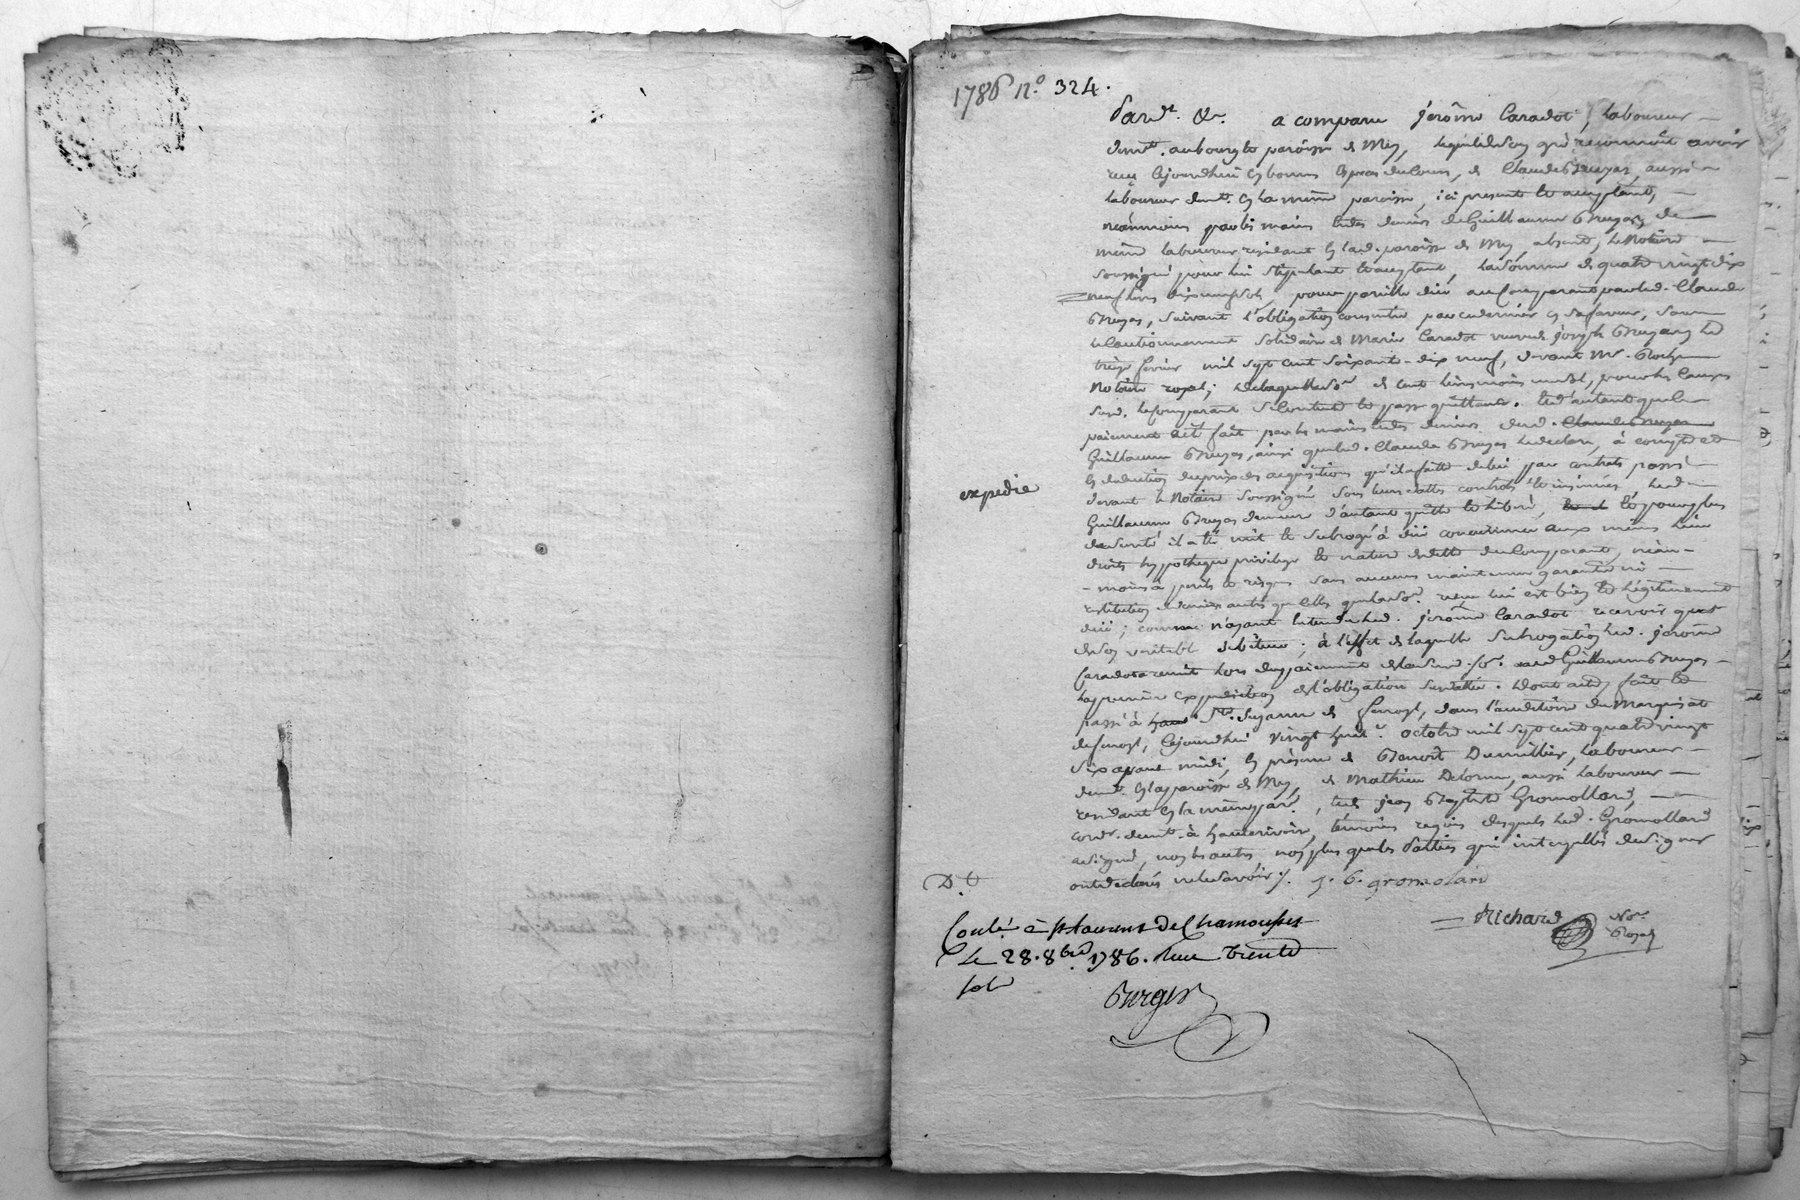 1786 n.o 324.
Pard.t &c. a comparu jerôme Caradot, Laboureur
dem.t au bourg et paroisse de Mys, lequel de son gré reconnoît avoir
reçu cejourdhui en bonnes espèces du Cours, de Claude Bruyas, aussi
Laboureur dem.t en la même paroisse, ici présent et acceptant,
néanmoins par les mains et des deniers de Guillaume Bruyas de
même laboureur résidant en lad. paroisse de Mys absent, le Notaire
soussigné pour lui stipulant et acceptant, la somme de quatre vingt dix
neuf livres dix neuf sols, pour pareille düe au Comparant par led. Claude
Bruyas, suivant l'obligation consentie par ce dernier en sa faveur, sous
le Cautionnement solidaire de Marie Caradot veuve de joseph Bruyas le
treize fevrier mil sept cent soixante-dix neuf, devant M.e
Notaire royal; de laquelle so.e de cent livres moins un sol, pour les causes
susd. le Comparant se contente et passe quittance. et d'autant que le
paiement a été fait par les mains et des deniers dud. Claude Bruyas
Guillaume Bruyas, ainsi que led. Claude Bruyas le declare, à compte et
en deduction du prix des acquisitions qu'il a faitte de lui par contrats passés
expedié
devant le Notaire soussigné sous leurs dattes controlés et insinués led.
Guillaume Bruyas demeure d'autant quitte et libéré, et pour plus
de sureté il a été mis et subrogé à düe concurrence aux mêmes lieu
droits hypotheque privilege et nature de dette du Comparant, néan-
-moins à perils et risques sans aucune maintenue garantie ni
restitution de deniers autre que celle que lad. so.e reçue lui est bien et légitimement
düe; comme n'ayant entendu led. jerôme Caradot recevoir que
de son veritable debiteur; à l'effet de laquelle subrogation led. jerôme
Caradot a remis lors du paiement de lad. so.e aud. Guillaume Bruyas
la premiere expedition de l'obligation susdattée. dont acte, fait et
passé à S.te Suzanne de fenoyl, dans l'auditoire du Marquisat
de fenoyl, cejourdhui vingt huit octobre mil sept cent quatre vingt
six avant midi, en présence de Benoit Dumillier, laboureur
dem.t en la paroisse de Mys, de Mathieu Delorme, aussi Laboureur
résidant en la même par.e, et de jean Baptiste Gromollard,
cord.r dem.t à hauterivoire, témoins requis desquels led. Gromollard
a signé, non les autres non plus que les Parties qui interpellés de signer
ont declarés ne le savoir ./. j. b. gromolard
D.t
Richard No.re
Royal
Conlé à St Laurent De Chamousset
Le 28. 8bre 1786. Reçu trente
sols
Burgur